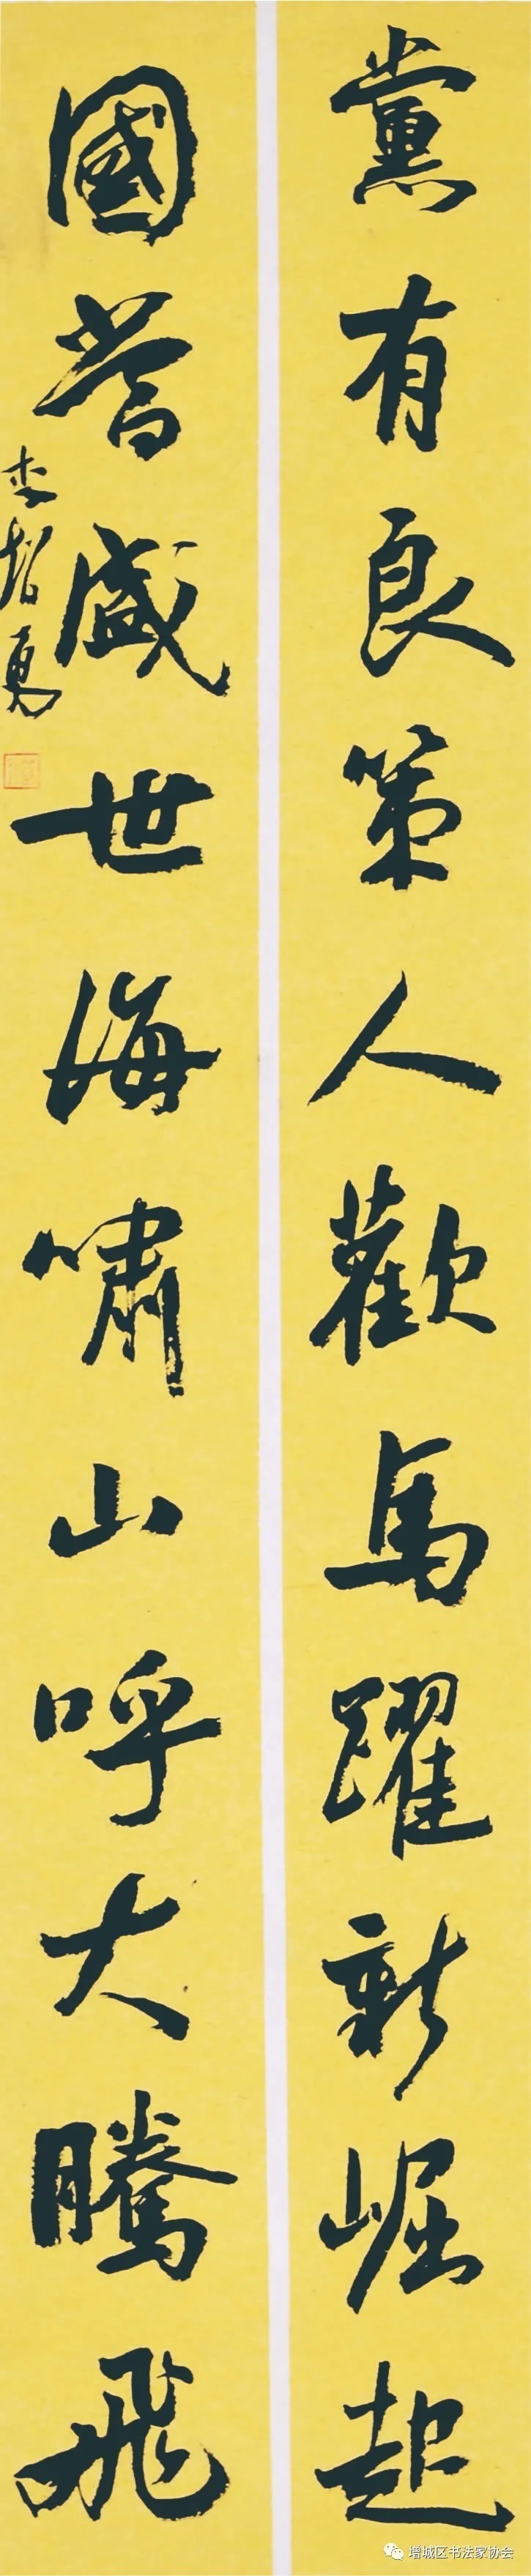 黨有良策人歡馬躍新崛起
國誉盛世海嘯山呼大騰飛
李增勇
增城区书法家协会